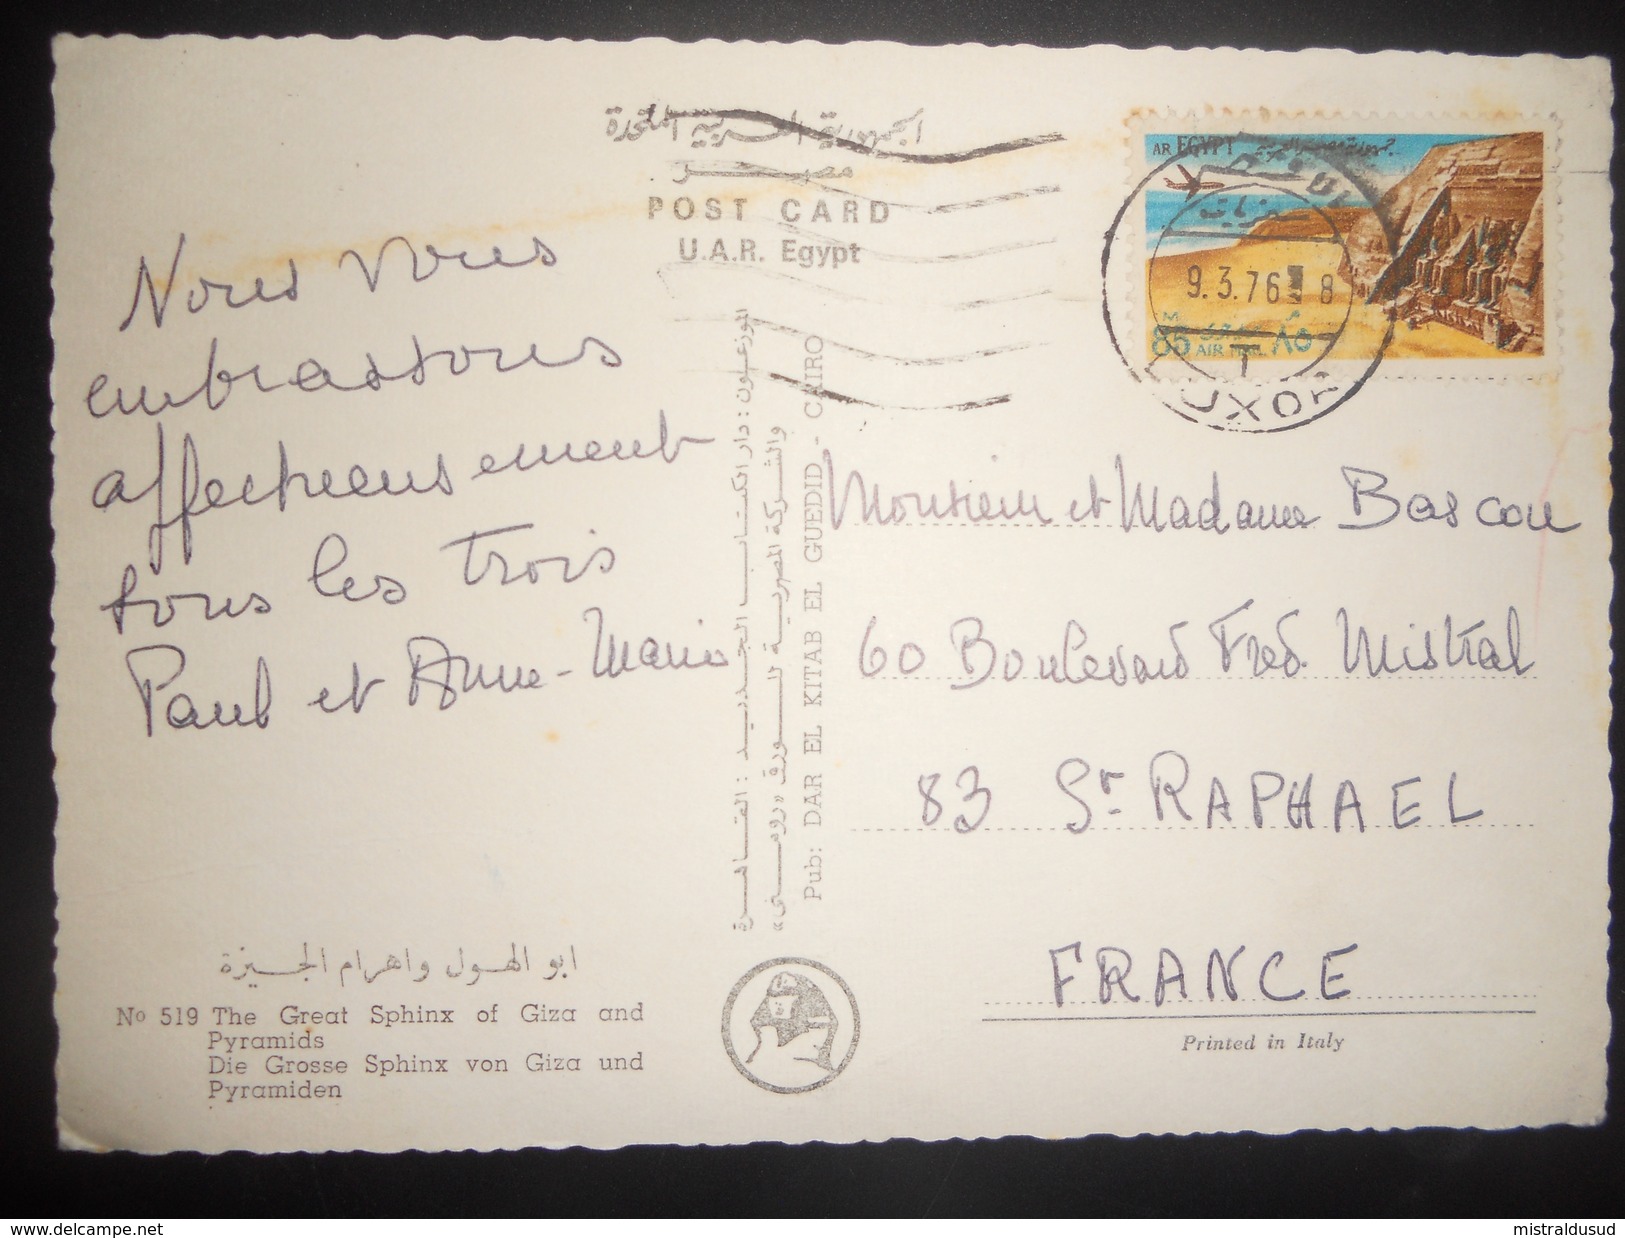 الجمهورية العربية المتحدة
مصر
POST CARD
U.A.R. Egypt
AR EGYPT
9.3.76 8
M
85
AIR MAIL ٨٥
LUXOR
Nous vous
embrassons
affectueusement
tous les trois
Paul et Anne-Marie
Monsieur et Madame Bascou
60 Boulevard Fred. Mistral
83 St. RAPHAEL
FRANCE
Printed in Italy
الموزعون : دار الكتاب الجديد : القاهرة
والشركة المصرية للورق «روسنى»
Pub: DAR EL KITAB EL GUEDID - CAIRO
ابو الهول واهرام الجيزة
No 519 The Great Sphinx of Giza and
Pyramids
Die Grosse Sphinx von Giza und
Pyramiden
www.delcampe.net
mistraldusud